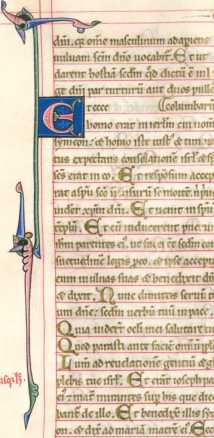 dn̄i. q̄ om̄e masculinum adaperiens
uuluam scm̄ dno uocabit̄. Et ut
darent hostiā scdm̄ qd̄ dictū ē in l
ge dn̄i par turturū aut duos pullo
Et ecce columbarū
homo erat in ierlm̄ cui nom̄
symeon. ⁊ homo iste iust' ⁊ tim
tus expectans consolationē isrl̄ ⁊ sp̄
sc̄s erat in eo. Et responsum accep
rat a spū sc̄o n̄ uisurū se mortē. n̄ pri
uideret xp̄m dn̄i. Et uenit in spū
teplū. Et cū inducerent puerū
ihm̄ parentes ei'. ut facer̄ent scdm̄ con
suetudinē legis p̄ eo. ⁊ ipse accepit
eum in ulnas suas ⁊ benedixit dm̄
⁊ dixit. Nunc dimittis seruū t
um dn̄e: scdm̄ uerbū tuū in pace.
Quia uider̄t oc̄li mei salutare tuū
Quod parasti ante faciē om̄iū p̄p
Lum̄ ad reuelationē gentiū ⁊ gl
plebis tue isrl̄. Et erat ioseph pat
ei' ⁊ mat̄ mirantes sup his que dice
bant̄ de illo. Et benedix̄ illis sy
on. ⁊ dix̄ ad mariā matrē ei'. Ecc